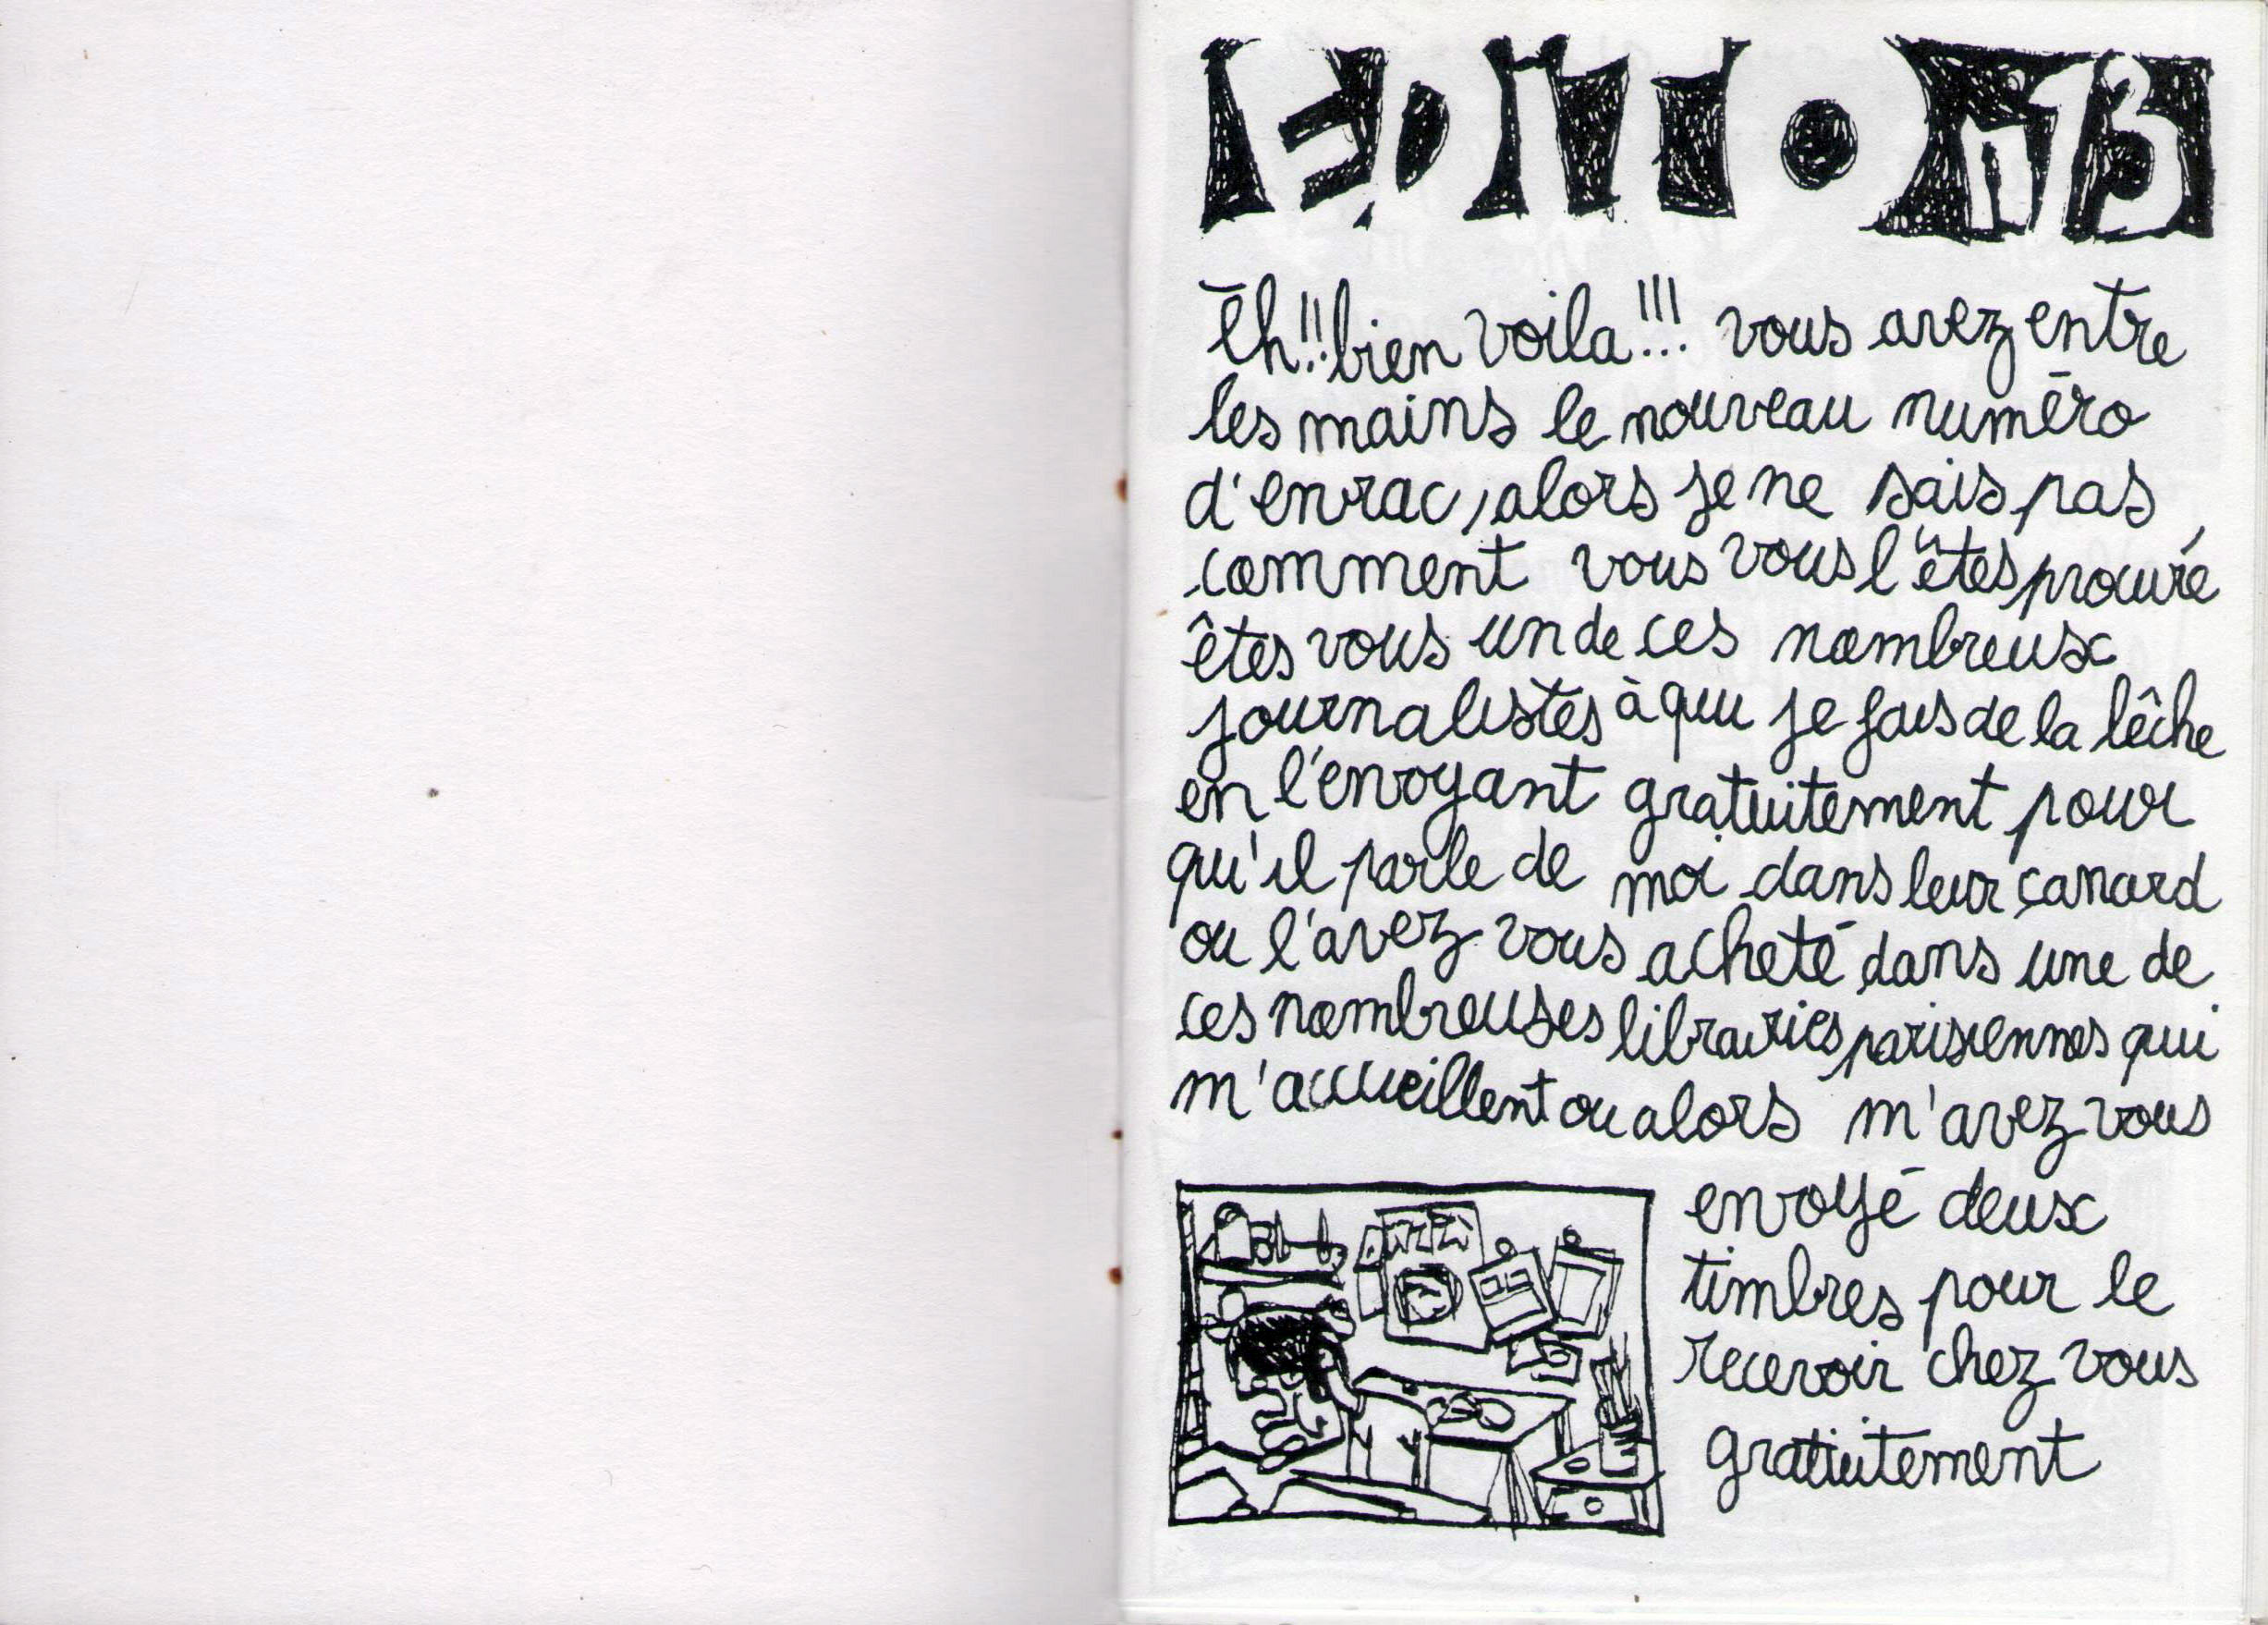 EDITO n°13
Eh!! bien voila!!! vous avez entre
les mains le nouveau numéro
d'enrac, alors je ne sais pas
comment vous vous l'êtes procuré
êtes vous un de ces nombreux
journalistes à qui je fais de la lêche
en l'envoyant gratuitement pour
qu'il parle de moi dans leur canard
ou l'avez vous acheté dans une de
ces nombreuses librairies parisiennes qui
m'accueillent ou alors m'avez vous
envoyé deux
timbres pour le
recevoir chez vous
gratuitement